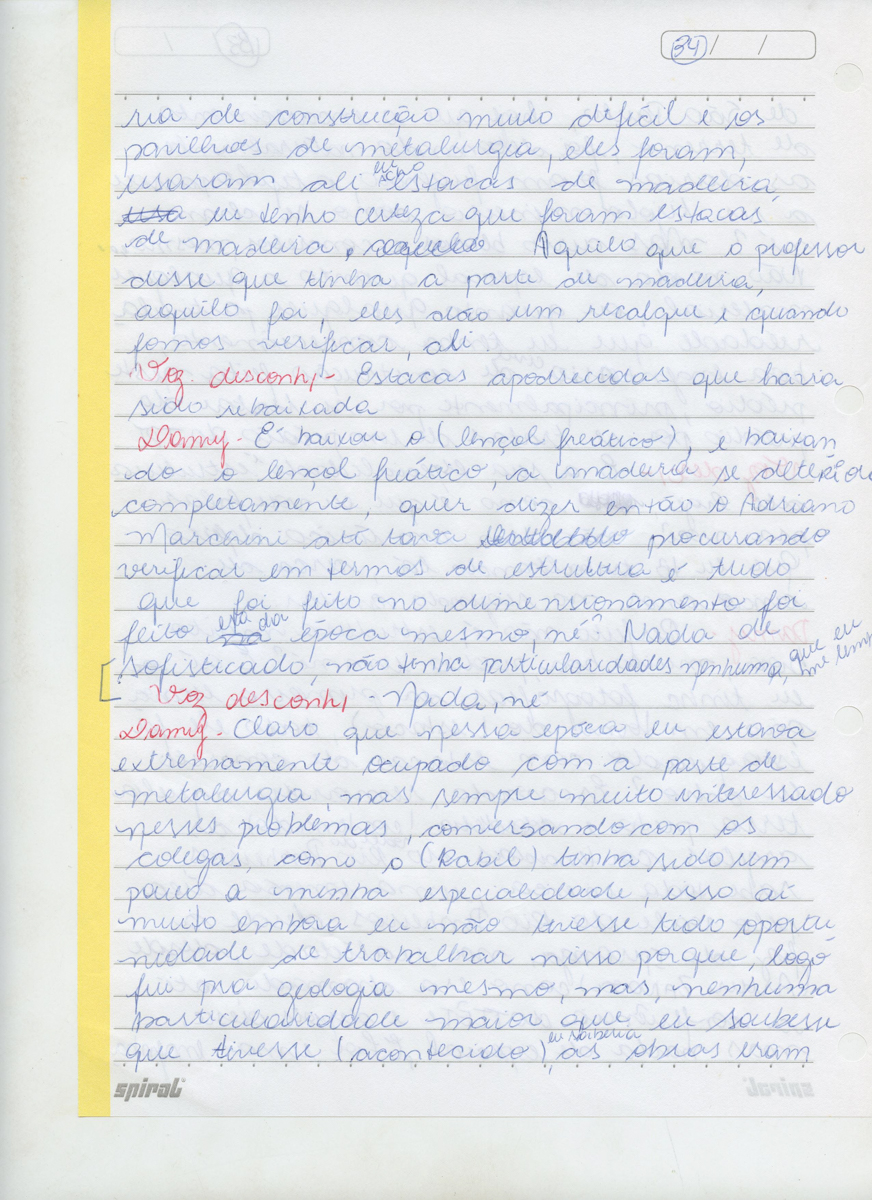 34 / /
ria de construção muito difícil e os
pavilhões de metalurgia, eles foram,
usaram ali eu acho estacas de madeira,
eu tenho certeza que foram estacas
de madeira, Aquilo que o professor
disse que tinha a parte de madeira,
aquilo foi, eles dão um recalque e quando
fomos verificar, ali.
Voz desconh, - Estacas apodrecidas que havia
sido rebaixada
Damy - É baixou o (lençol freático), e baixan
do o lençol freático, a madeira se deteriora
completamente, quer dizer então o Adriano
Marchini até tava procurando
verificar em termos de estrutura é tudo
que foi feito no dimensionamento foi
feito esta da época mesmo, né? Nada de
sofisticado, não tinha particularidades nenhuma, que eu
me lemb
Voz desconh, - Nada, né
Damy - Claro que nessa época eu estava
extremamente ocupado com a parte de
metalurgia, mas sempre muito interessado
nesses problemas, conversando com os
colegas, como o (Rabel) tinha sido um
pouco a minha especialidade, isso aí
muito embora eu não tivesse tido oportu
nidade de trabalhar nisso porque, logo
fui pra geologia mesmo, mas, nenhuma
particularidade maior que eu soubesse
que tivesse (acontecido), eu saberia as obras eram
spiral